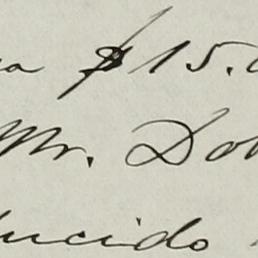 $15.
Mr. Do
ucido